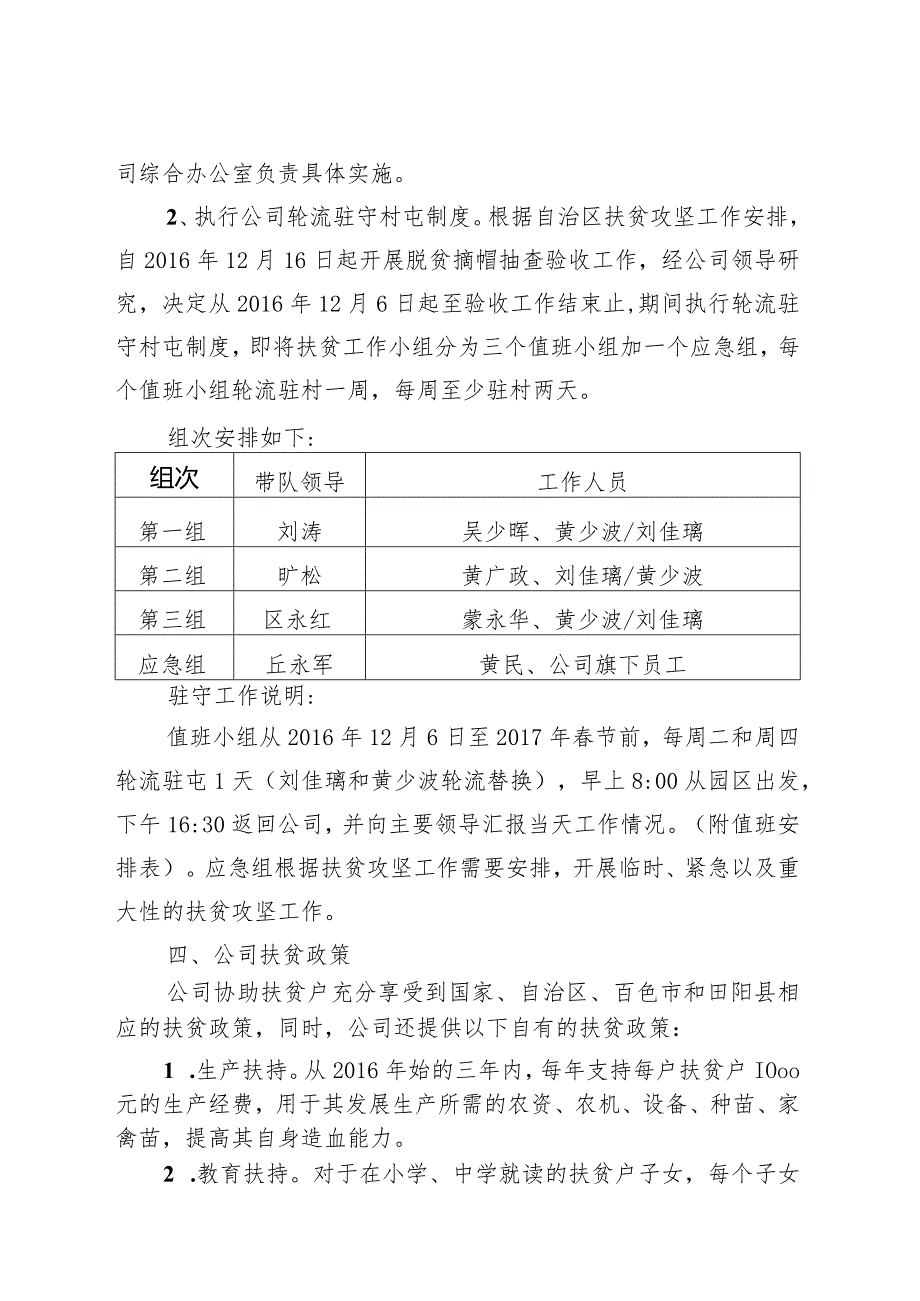 司综合办公室负责具体实施。
2、执行公司轮流驻守村屯制度。根据自治区扶贫攻坚工作安排，
自2016年12月16日起开展脱贫摘帽抽查验收工作，经公司领导研
究，决定从2016年12月6日起至验收工作结束止,期间执行轮流驻
守村屯制度，即将扶贫工作小组分为三个值班小组加一个应急组，每
个值班小组轮流驻村一周，每周至少驻村两天。
组次安排如下：
组次 带队领导 工作人员
第一组 刘涛 吴少晖、黄少波/刘佳璃
第二组 旷松 黄广政、刘佳璃/黄少波
第三组 区永红 蒙永华、黄少波/刘佳璃
应急组 丘永军 黄民、公司旗下员工
驻守工作说明：
值班小组从2016年12月6日至2017年春节前，每周二和周四
轮流驻屯1天（刘佳璃和黄少波轮流替换），早上8:00从园区出发，
下午16:30返回公司，并向主要领导汇报当天工作情况。（附值班安
排表）。应急组根据扶贫攻坚工作需要安排，开展临时、紧急以及重
大性的扶贫攻坚工作。
四、公司扶贫政策
公司协助扶贫户充分享受到国家、自治区、百色市和田阳县相
应的扶贫政策，同时，公司还提供以下自有的扶贫政策：
1 .生产扶持。从2016年始的三年内，每年支持每户扶贫户IOoo
元的生产经费，用于其发展生产所需的农资、农机、设备、种苗、家
禽苗，提高其自身造血能力。
2 .教育扶持。对于在小学、中学就读的扶贫户子女，每个子女